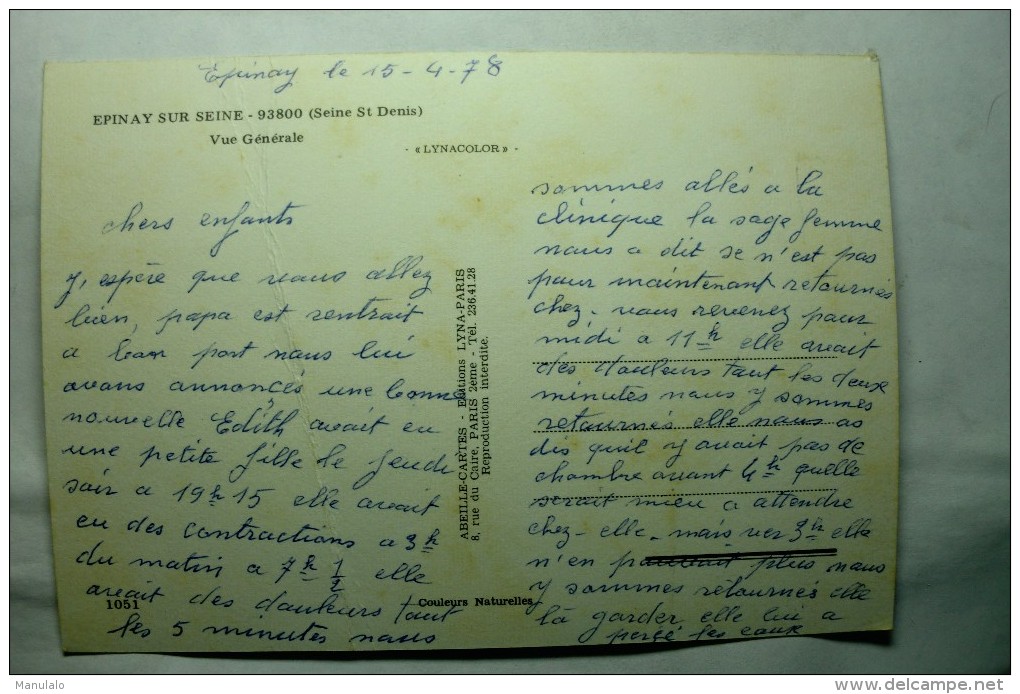 Epinay le 15-4-78
EPINAY SUR SEINE - 93800 (Seine St Denis)
Vue Générale
- « LYNACOLOR » -
chers enfants
J, espère que vous allez
bien, papa est rentrait
a bon port nous lui
avons annoncés une bonne
nouvelle Edith avait eu
une petite fille le jeudi
soir a 19h 15 elle avait
eu des contractions a 3h
du matin a 7h 1/2 elle
avait des douleurs tout
les 5 minutes nous
1051
Couleurs Naturelles
ABEILLE-CARTES - Editions LYNA-PARIS
8, rue du Caire, PARIS 2eme - Tél. 236.41.28
Reproduction interdite.
sommes allés a la
clinique la sage femme
nous a dit se n'est pas
pour maintenant retournés
chez-vous revenez pour
midi a 11h elle avait
des douleurs tout les deux
minutes nous y sommes
retournés elle nous as
dis quil y avait pas de
chambre avant 4h quelle
serait mieu a attendre
chez-elle, mais ver 3h elle
n'en pouvait plus nous
y sommes retournés elle
là garder elle lui a
percé les eaux
Manulalo
delcampe.net